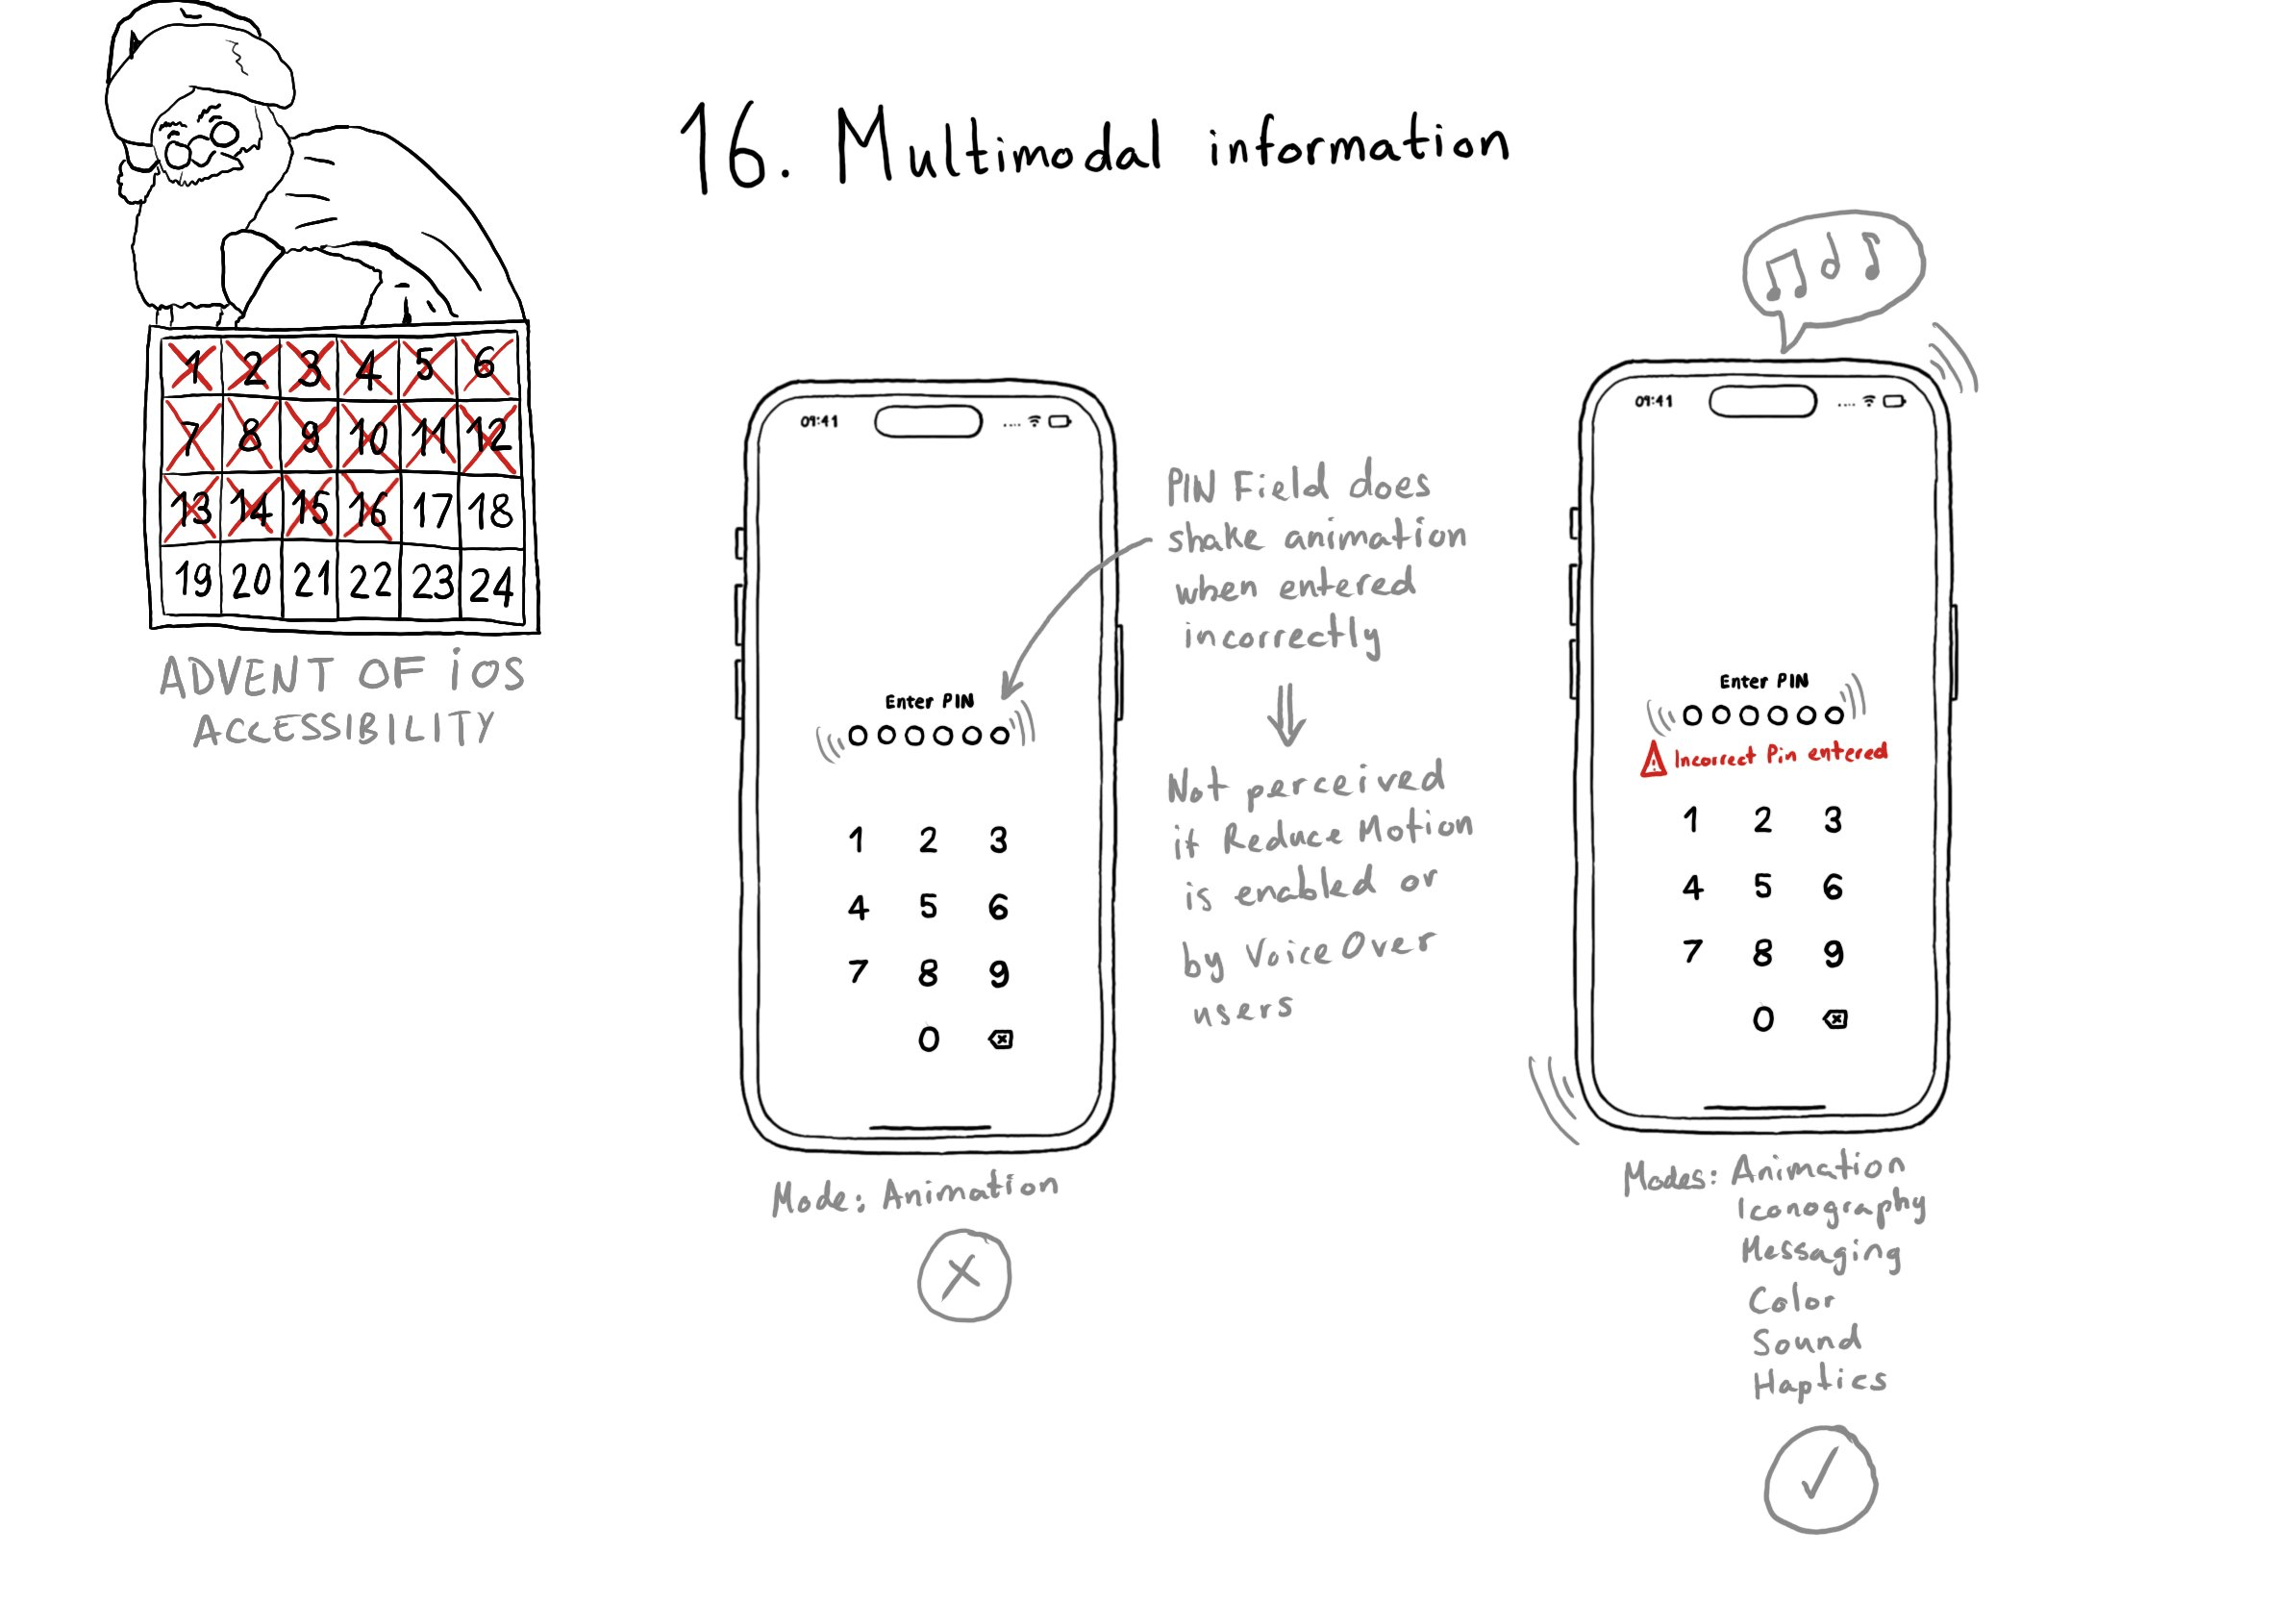 16. Multimodal information
1 2 3 4 5 6
7 8 9 10 11 12
13 14 15 16 17 18
19 20 21 22 23 24
ADVENT OF iOS
ACCESSIBILITY
09:41
Enter PIN
1 2 3
4 5 6
7 8 9
0
Mode: Animation
PIN Field does
shake animation
when entered
incorrectly
Not perceived
if Reduce Motion
is enabled or
by VoiceOver
users
09:41
Enter PIN
Incorrect Pin entered
1 2 3
4 5 6
7 8 9
0
Modes: Animation
Iconography
Messaging
Color
Sound
Haptics